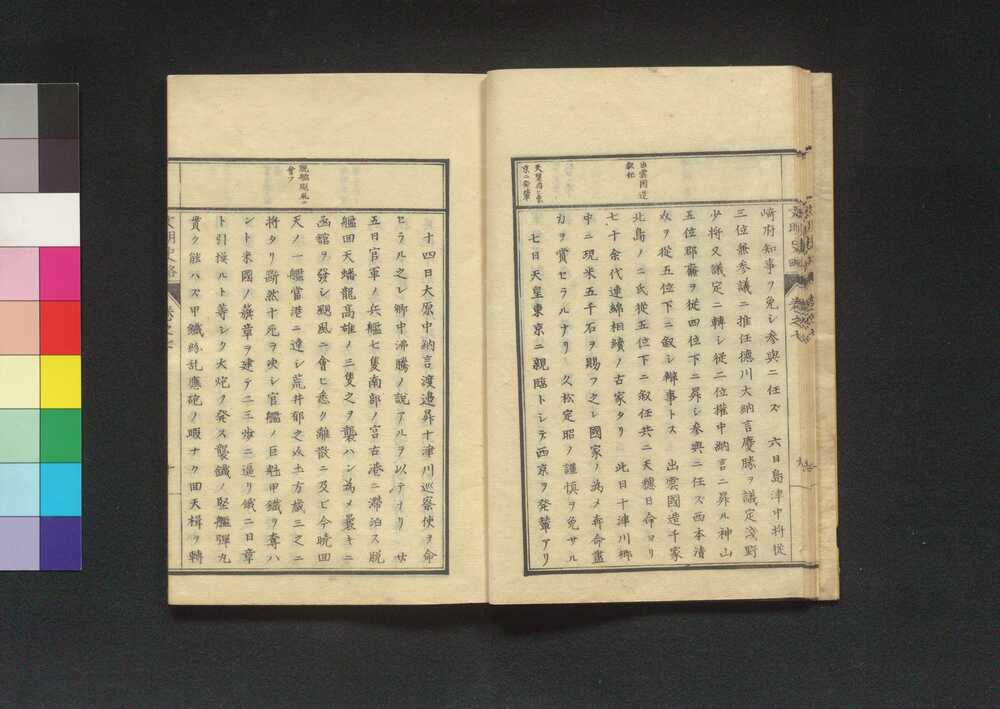 出雲国造
叙任
天皇再ヒ東
京ニ発輦
崎府知事ヲ免シ参與ニ任ズ　六日島津中将従
三位兼参議ニ推任徳川大納言慶勝ヲ議定浅野
少将又議定ニ轉シ従二位權中納言ニ昇ル神山
五位郡廉ヲ従四位下ニ昇シ参與ニ任ズ西本清
介ヲ従五位下ニ叙シ辯事トス　出雲國造千家
北島ノ二氏従五位下ニ叙任共ニ天穂日命ヨリ
七十余代連綿相續ノ古家タリ　此日十津川郷
中ニ現米五千石ヲ賜フ之レ國家ノ為メ奔命盡
力ヲ賞セラルヽナリ　久松定昭ノ謹慎ヲ免サル
七日天皇東京ニ親臨トシテ西京ヲ発輦アリ
文明史略　巻之七
脱艦颶風ニ
會フ
十四日大原中納言渡邉昇十津川巡察使ヲ命
セラル之レ郷中沸騰ノ説アルヲ以テナリ　廿
五日官軍ノ兵艦七隻南部ノ宮古港ニ滞泊ス脱
艦回天蟠龍高雄ノ三隻之ヲ襲ハン為メ曩キニ
函館ヲ發シ颶風ニ會ヒ悉ク離散ニ及ビ今暁回
天ノ一艦當港ニ達シ荒井郁之助土方歳三之ニ
将タリ断然十死ヲ决シ官艦ノ巨魁甲鐵ヲ奪ハ
ント米國ノ旗章ヲ建テ二三歩ニ逼リ俄ニ日章
ト引換ルト等シク大炮ヲ発ス襲鐵ノ堅艦弾丸
貫ク能ハズ甲鐵紛乱應砲ノ暇ナク回天楫ヲ轉
文明史略　巻之七